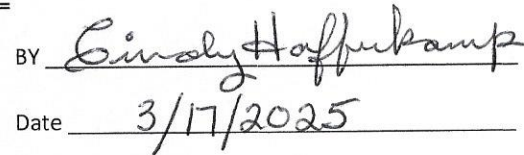 =
BY Cindy Haffukamp
Date 3/17/2025